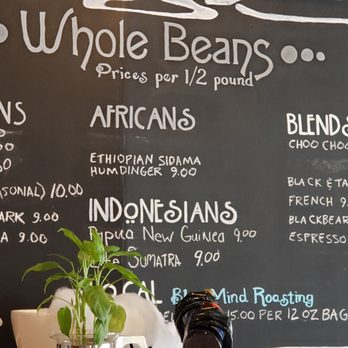 Whole Beans
Prices per 1/2 pound
AFRICANS
ETHIOPIAN SIDAMA
HUMDINGER 9.00
INDONESIANS
Papua New Guinea 9.00
SUMATRA 9.00
Mind Roasting
15.00 PER 12 OZ BAG
10.00
9.00
9.00
BLENDS
CHOO CHOO
BLACK & TA
FRENCH 9
BLACKBEAR
ESPRESSO